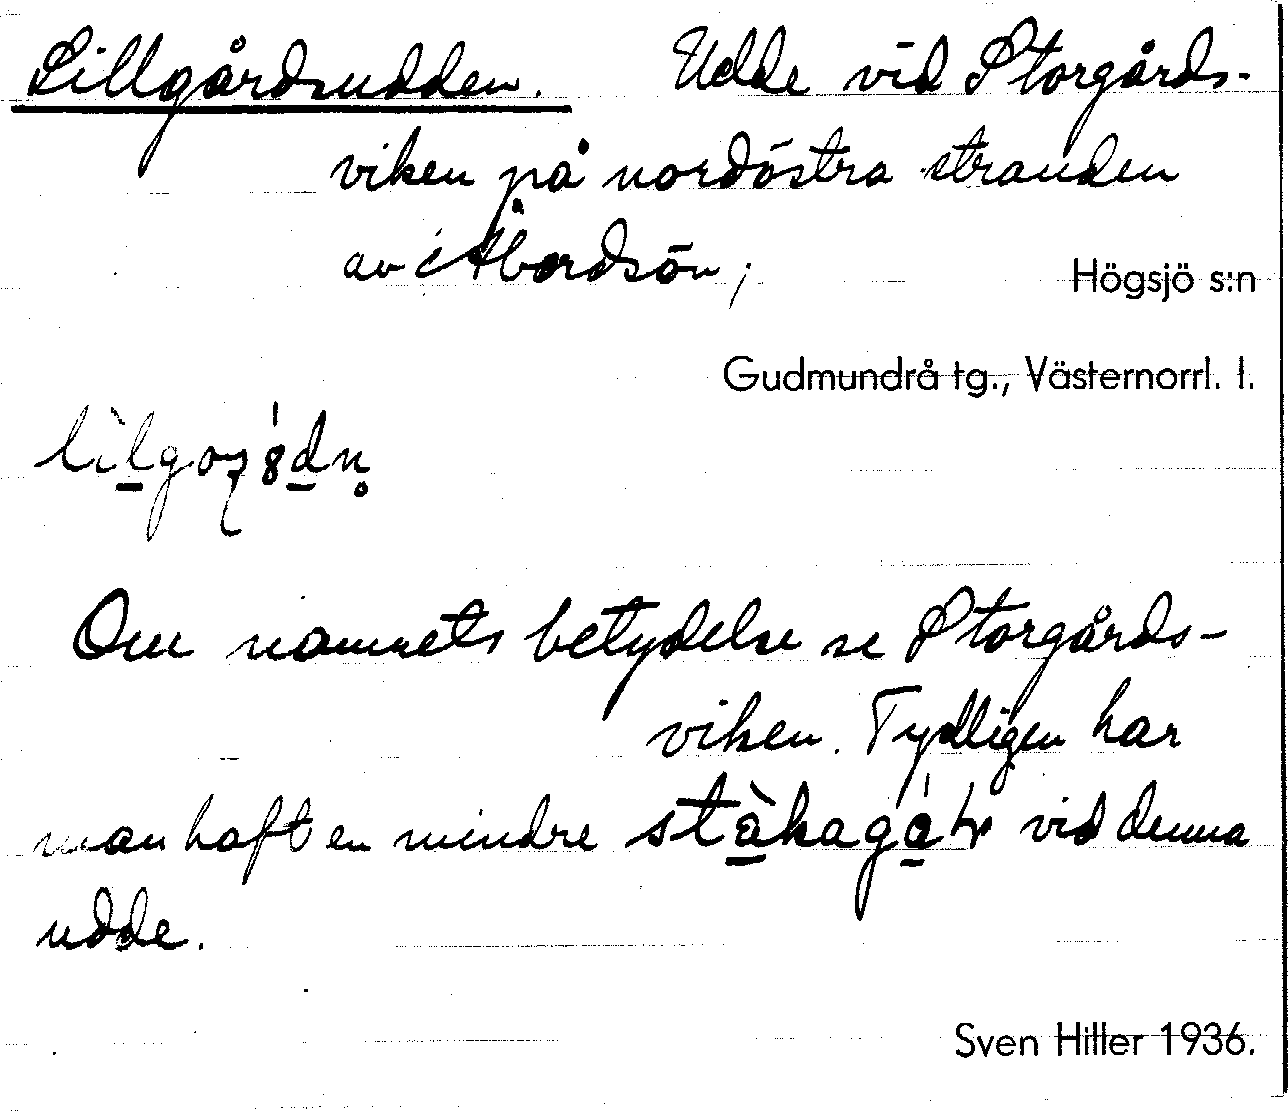 Lillgårdsudden. Udde vid Storgårds-
viken på nordöstra stranden
av Åbordsön; Högsjö s:n
Gudmundrå tg., Västernorrl. l.
Om namnets betydelse se Storgårds-
viken. Tydligen har
man haft en mindre vid denna
udde.
Sven Hiller 1936.